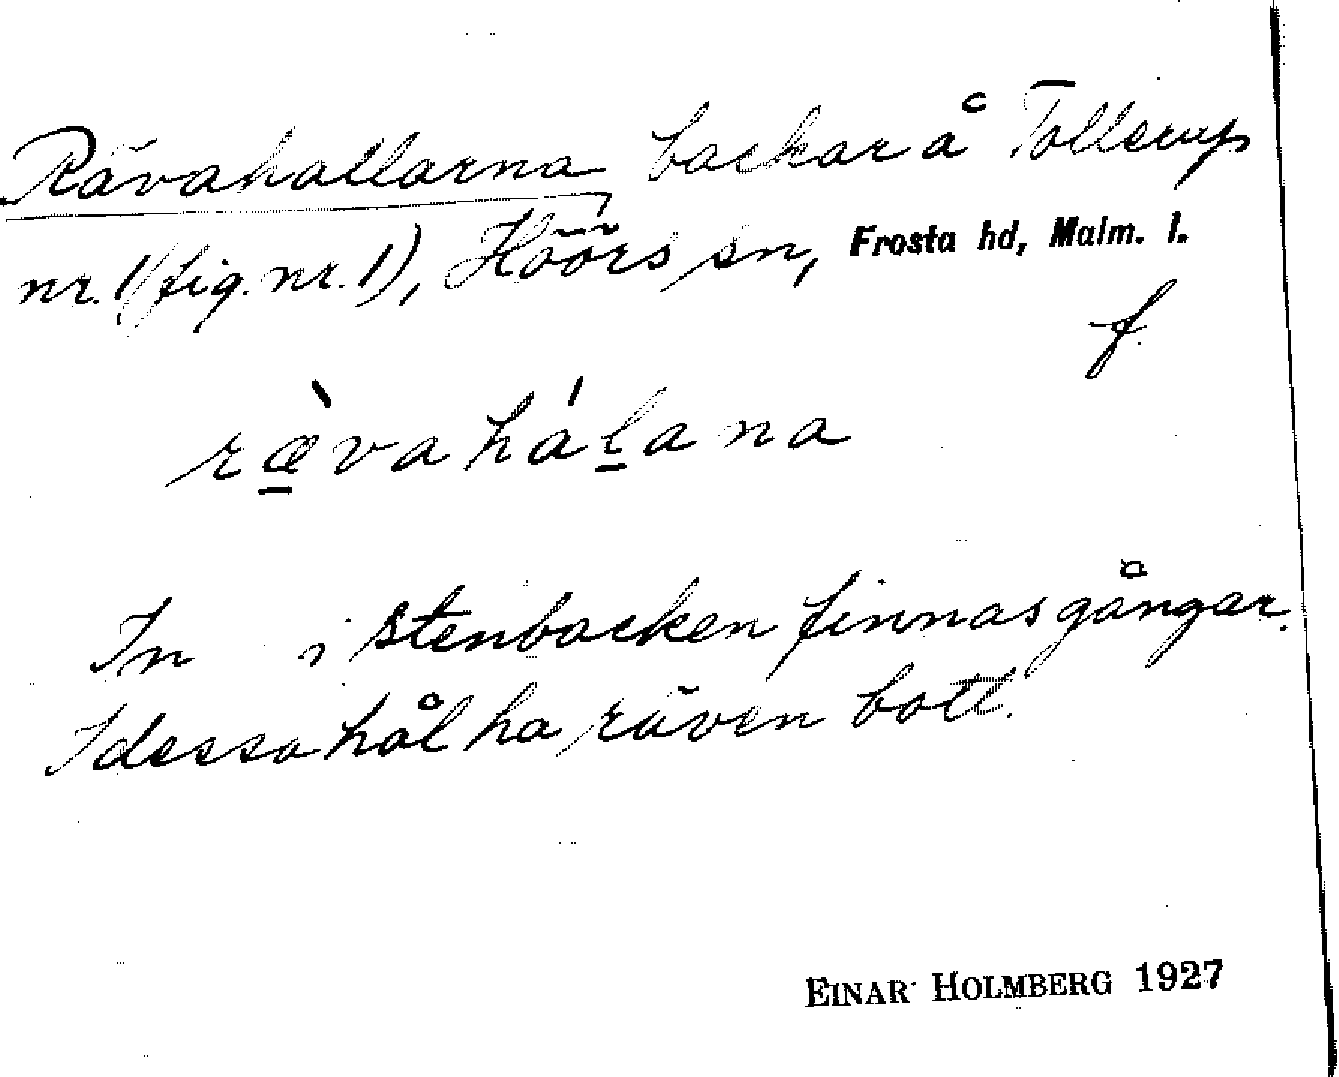 Rävahallarna, backar å Tollerup
nr. 1 (fig. nr. 1), Höörs sn, Frosta hd, Malm. l.
f.
ræ̀vahálana
In i stenbacken finnas gångar.
I dessa hål ha räven bott.
EINAR HOLMBERG 1927